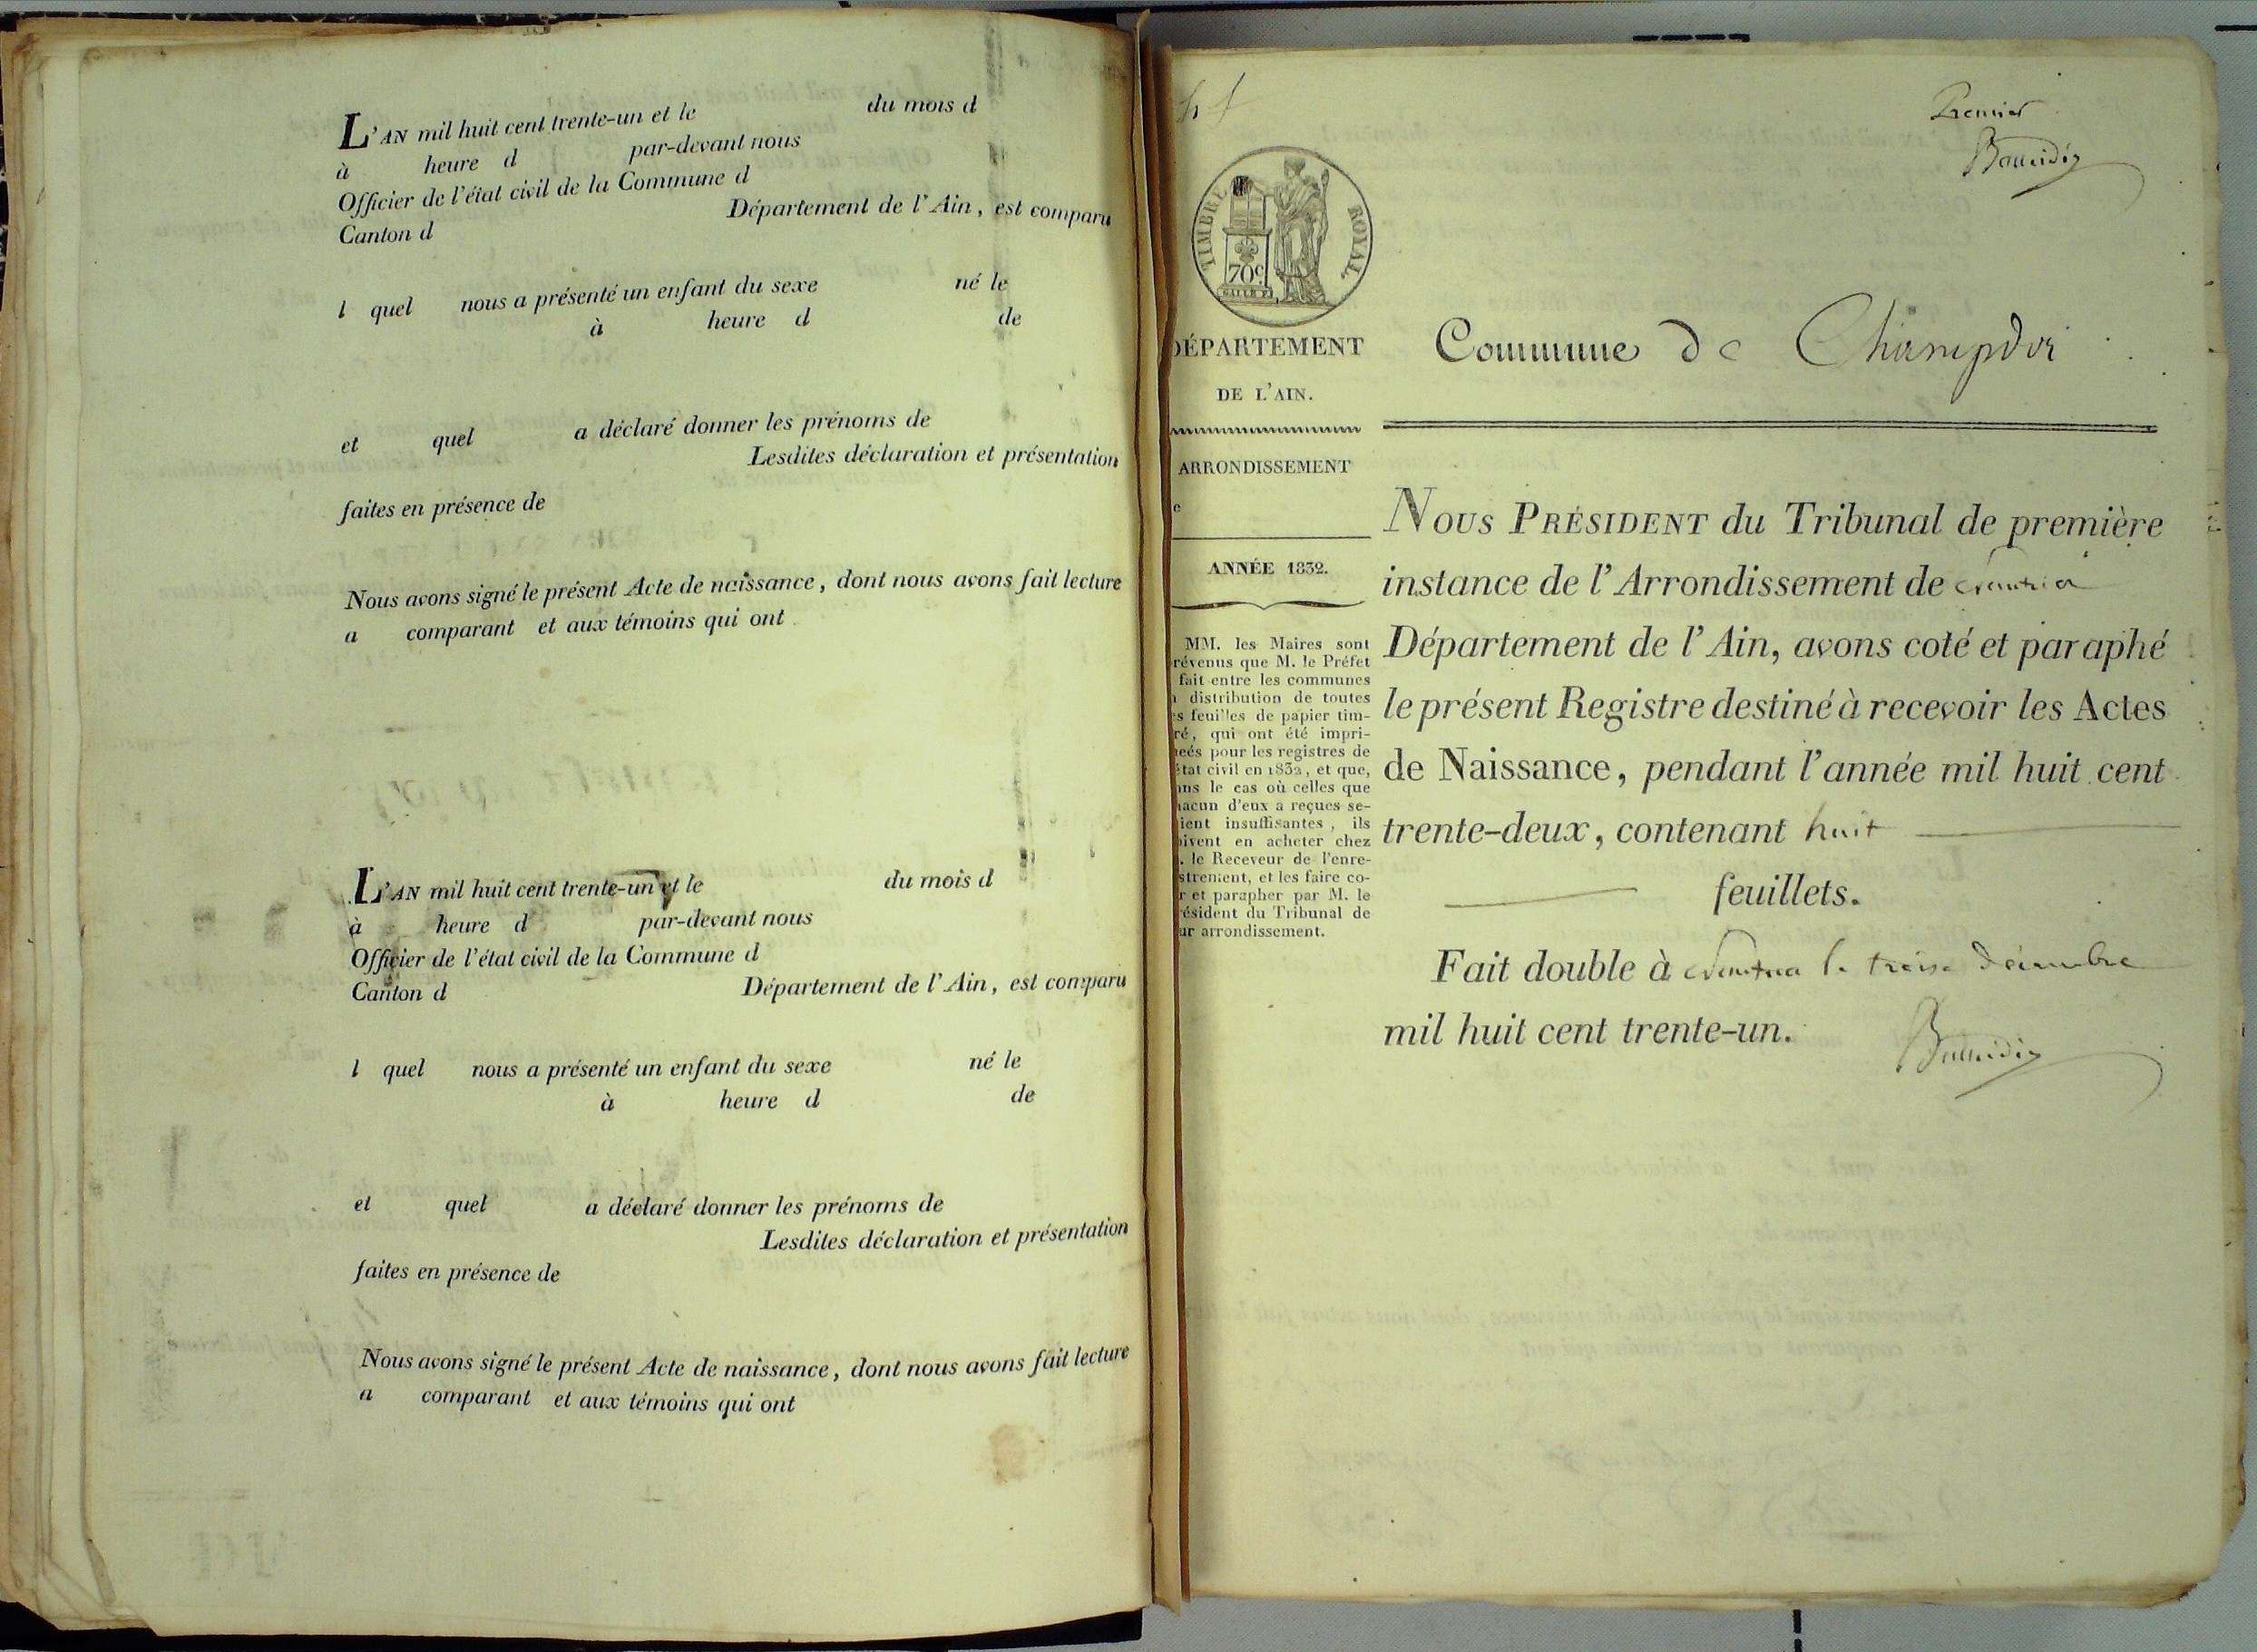 L'AN mil huit cent trente-un et le du mois d
à heure d par-devant nous
Officier de l'état civil de la Commune d
Canton d Département de l'Ain, est comparu
l quel nous a présenté un enfant du sexe né le
à heure d de
et quel a déclaré donner les prénoms de
Lesdites déclaration et présentation
faites en présence de
Nous avons signé le présent Acte de naissance, dont nous avons fait lecture
a comparant et aux témoins qui ont
L'AN mil huit cent trente-un et le du mois d
à heure d par-devant nous
Officier de l'état civil de la Commune d
Canton d Département de l'Ain, est comparu
l quel nous a présenté un enfant du sexe né le
à heure d de
et quel a déclaré donner les prénoms de
Lesdites déclaration et présentation
faites en présence de
Nous avons signé le présent Acte de naissance, dont nous avons fait lecture
a comparant et aux témoins qui ont
Premier
TIMBRE ROYAL
70c
DÉPARTEMENT
DE L'AIN.
ARRONDISSEMENT
ANNÉE 1832.
MM. les Maires sont
révenus que M. le Préfet
fait entre les communes
distribution de toutes
s feuilles de papier tim-
ré, qui ont été impri-
eés pour les registres de
état civil en 1832, et que,
ans le cas où celles que
hacun d'eux a reçues se-
ient insuffisantes, ils
oivent en acheter chez
. le Receveur de l'enre-
strement, et les faire co-
r et parapher par M. le
résident du Tribunal de
ur arrondissement.
Commune de Champdor
NOUS PRÉSIDENT du Tribunal de première
instance de l'Arrondissement de Nantua
Département de l'Ain, avons coté et paraphé
le présent Registre destiné à recevoir les Actes
de Naissance, pendant l'année mil huit cent
trente-deux, contenant huit
feuillets.
Fait double à Nantua le treize décembre
mil huit cent trente-un.